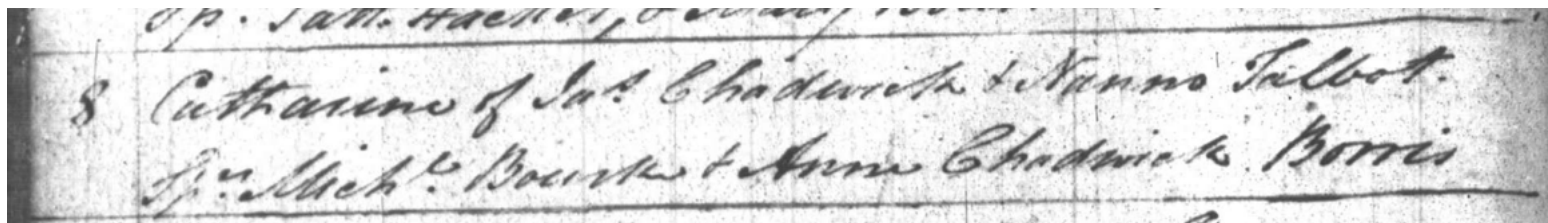 Sp. Patt. Hacket, & Mary
8 Catharine of Jas. Chadwick & Nanno Talbot.
Sprs. Michl. Bourke & Anne Chadwick Borris